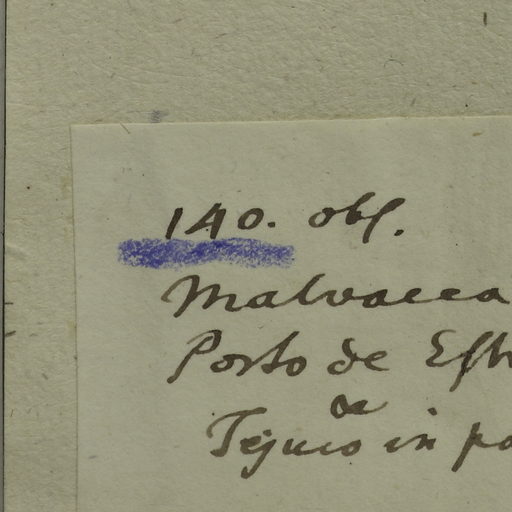 140. obs.
Malvacea
Porto de Est
da
Tejuco in pa